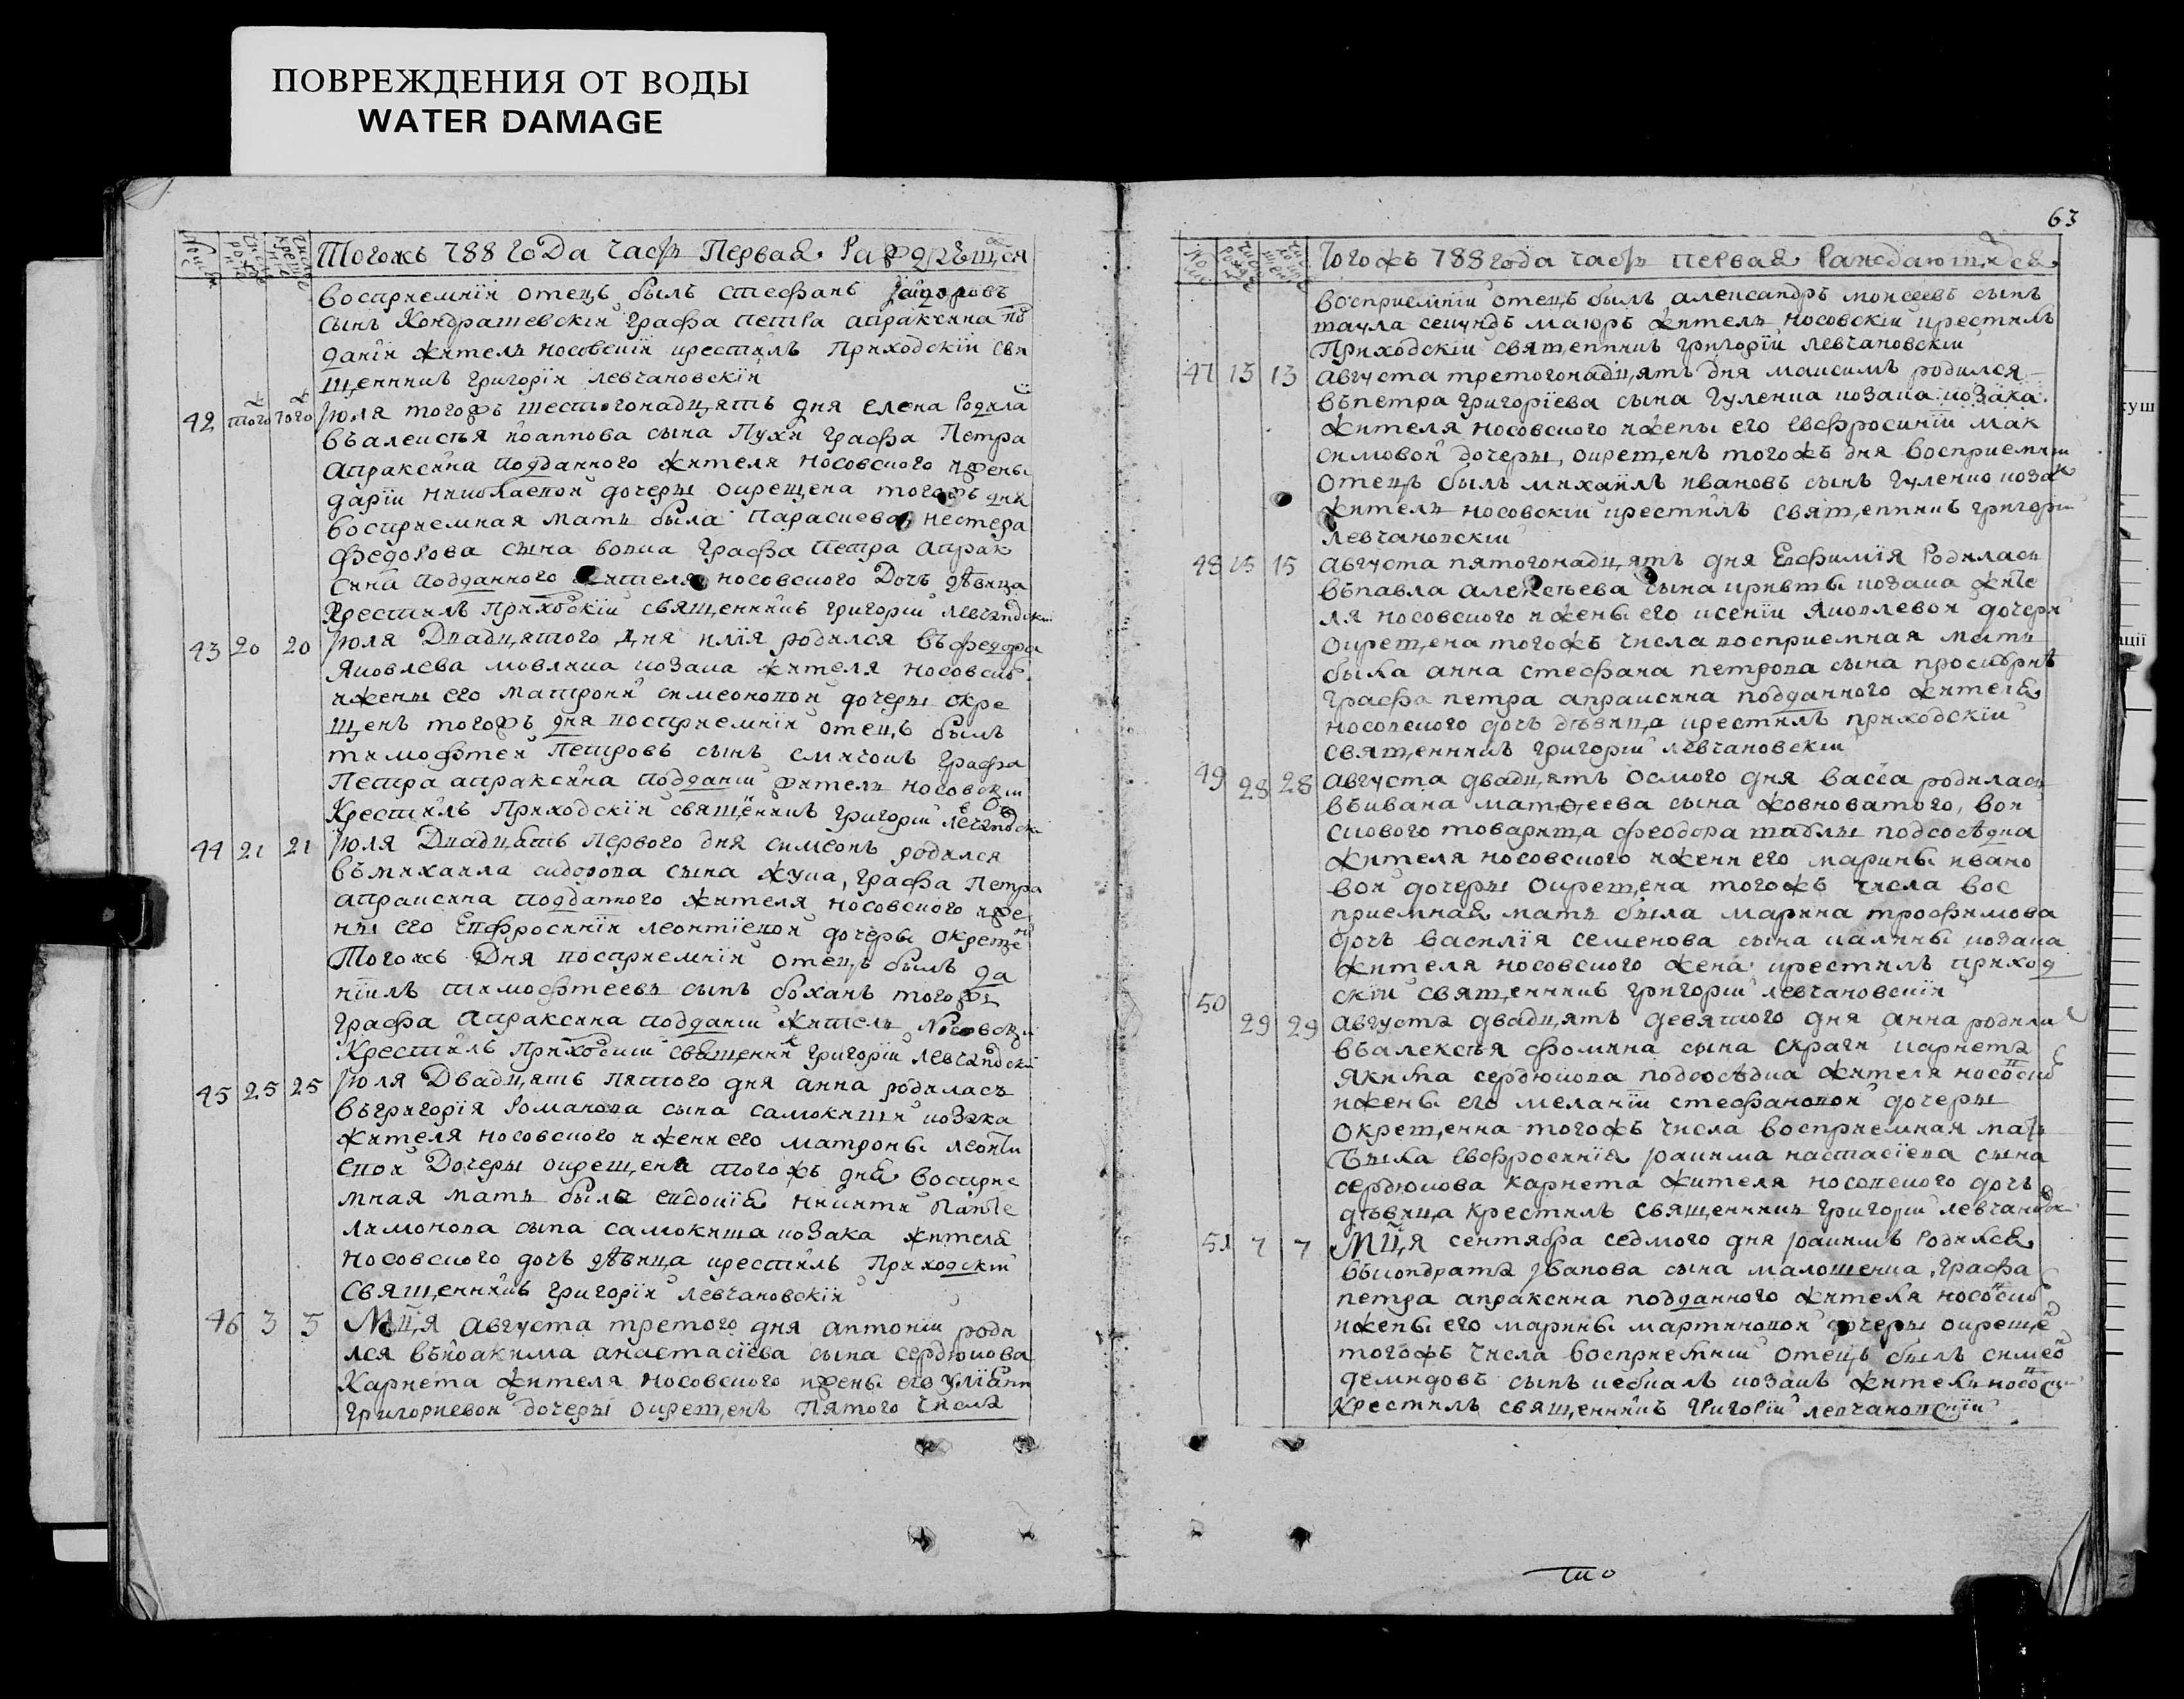 ПОВРЕЖДЕНИЯ ОТ ВОДЫ
WATER DAMAGE
63
Тогожъ 788 года часть Первая
восприемнїй отецъ былъ стефанъ
сынъ Кондрашевскїй графа петра апраксина под
данїй жителъ носовскїй крестилъ Приходскїй свя
щенникъ григорїй левчановскїй
42 того того
юля тогожъ шестогонадцять дня елена Родила
въалексѣя їоаннова сына Пухи графа Петра
апраксина подданного жителя носовского ижены
дарїи николаевой дочеры окрещена тогожъ дня
восприемная мать была Параскева нестера
федорова сына вовка графа Петра апрак
сина подданного жителя носовского Дочъ дѣвица
Крестилъ Приходскїй священникъ григорїй левчановскїй
43 20 20
юля Двадцятого дня илїя родился въфеодора
Яковлева мовлика козака жителя носовско
ижены его матроны симеоновой дочеры окре
щенъ тогожъ дня восприемнїй отецъ былъ
тимофтей Петровъ сынъ графа
Петра апраксина подданїй житель носовскїй
Крестилъ Приходскїй священникъ григорїй
44 21 21
юля Двадцять Первого дня симеонъ родился
въмихаила сидорова сына жука, графа Петра
апраксина подданного жителя носовского иже
ны его Евфросинїи леонтїевой дочеры окреще
Тогожъ Дня восприемнїй отецъ былъ да
нїилъ тимофтеевъ сынъ боханъ тогожъ
графа апраксина подданїй житель Носовскїй
Крестилъ Приходскїй священникъ григорїй левчановскїй
45 25 25
юля Двадцять пятого дня анна родилась
въгригорїя Романова сына самокиши козака
жителя носовского ижени его матроны леонтї
евой Дочеры окрещена тогожъ дня восприе
мная мать была никиты Панте
лимонова сына самокиша козака жителя
носовского дочъ дѣвица крестилъ Приходскїй
священникъ григорїй левчановскїй
46 3 5
Мц,я августа третого дня антонїй роди
лся въїоакима анастасїева сына сердюкова
Карнета жителя носовского ижены его улїянн
григориевой дочеры окрещенъ пятого числа
Тогожъ 788 года часть первая Раждающихся
восприемнїй отецъ былъ александръ моисеевъ сынъ
секундъ маюръ жителъ носовскїй крестилъ
Приходскїй священникъ григорїй левчановскїй
47 13 13
августа третогонадцять дня максимъ родился
въпетра григорїева сына гуленка козака козака
жителя носовского ижены его евфросинїи мак
симовой дочеры, окрещенъ тогожъ дня восприемнїй
отецъ былъ михаилъ ивановъ сынъ гуленко козак
жителъ носовскїй крестилъ священникъ григорїй
левчановскїй
48 15 15
августа пятогонадцять дня Евфимїя Родилась
въпавла алексѣева сына козака жите
ля носовского ижены его ксенїи яковлевой дочеры
окрещена тогожъ числа восприемная мать
была анна стефана петрова сына
графа петра апраксина подданного жителя
носовского дочъ дѣвица крестилъ приходскїй
священникъ григорїй левчановскїй
49 28 28
августа двадцять осмого дня васса родилась
въивана матѳеева сына жовноватого, вой
скового товарища феодора подсосѣдка
жителя носовского ижени его марины ивано
вой дочеры окрещена тогожъ числа вос
приемная мать была марина трофимова
дочъ василїя семенова сына калины козака
жителя носовского жена крестилъ приход
скїй священникъ григорїй левчановскїй
50 29 29
августа двадцять девятого дня анна родила
въалексѣя фомина сына скраги карнета
якима сердюкова подсосѣдка жителя носовско
ижены его меланїи стефановой дочеры
окрещенна тогожъ числа восприемная мать
была евфросинїя їоакима настасїева сына
сердюкова карнета жителя носовского дочъ
дѣвица Крестилъ священникъ григорїй левчановскїй
51 7 7
Мц,я сентября седмого дня їоакимъ Родился
въкондрата їванова сына малошенка, графа
петра апраксина подданного жителя носовско
ижены его марины мартиновой дочеры окреще
тогожъ числа восприемнїй отецъ былъ симео
демидовъ сынъ козакъ житель носовскї
Крестилъ священникъ григорїй левчановскїй